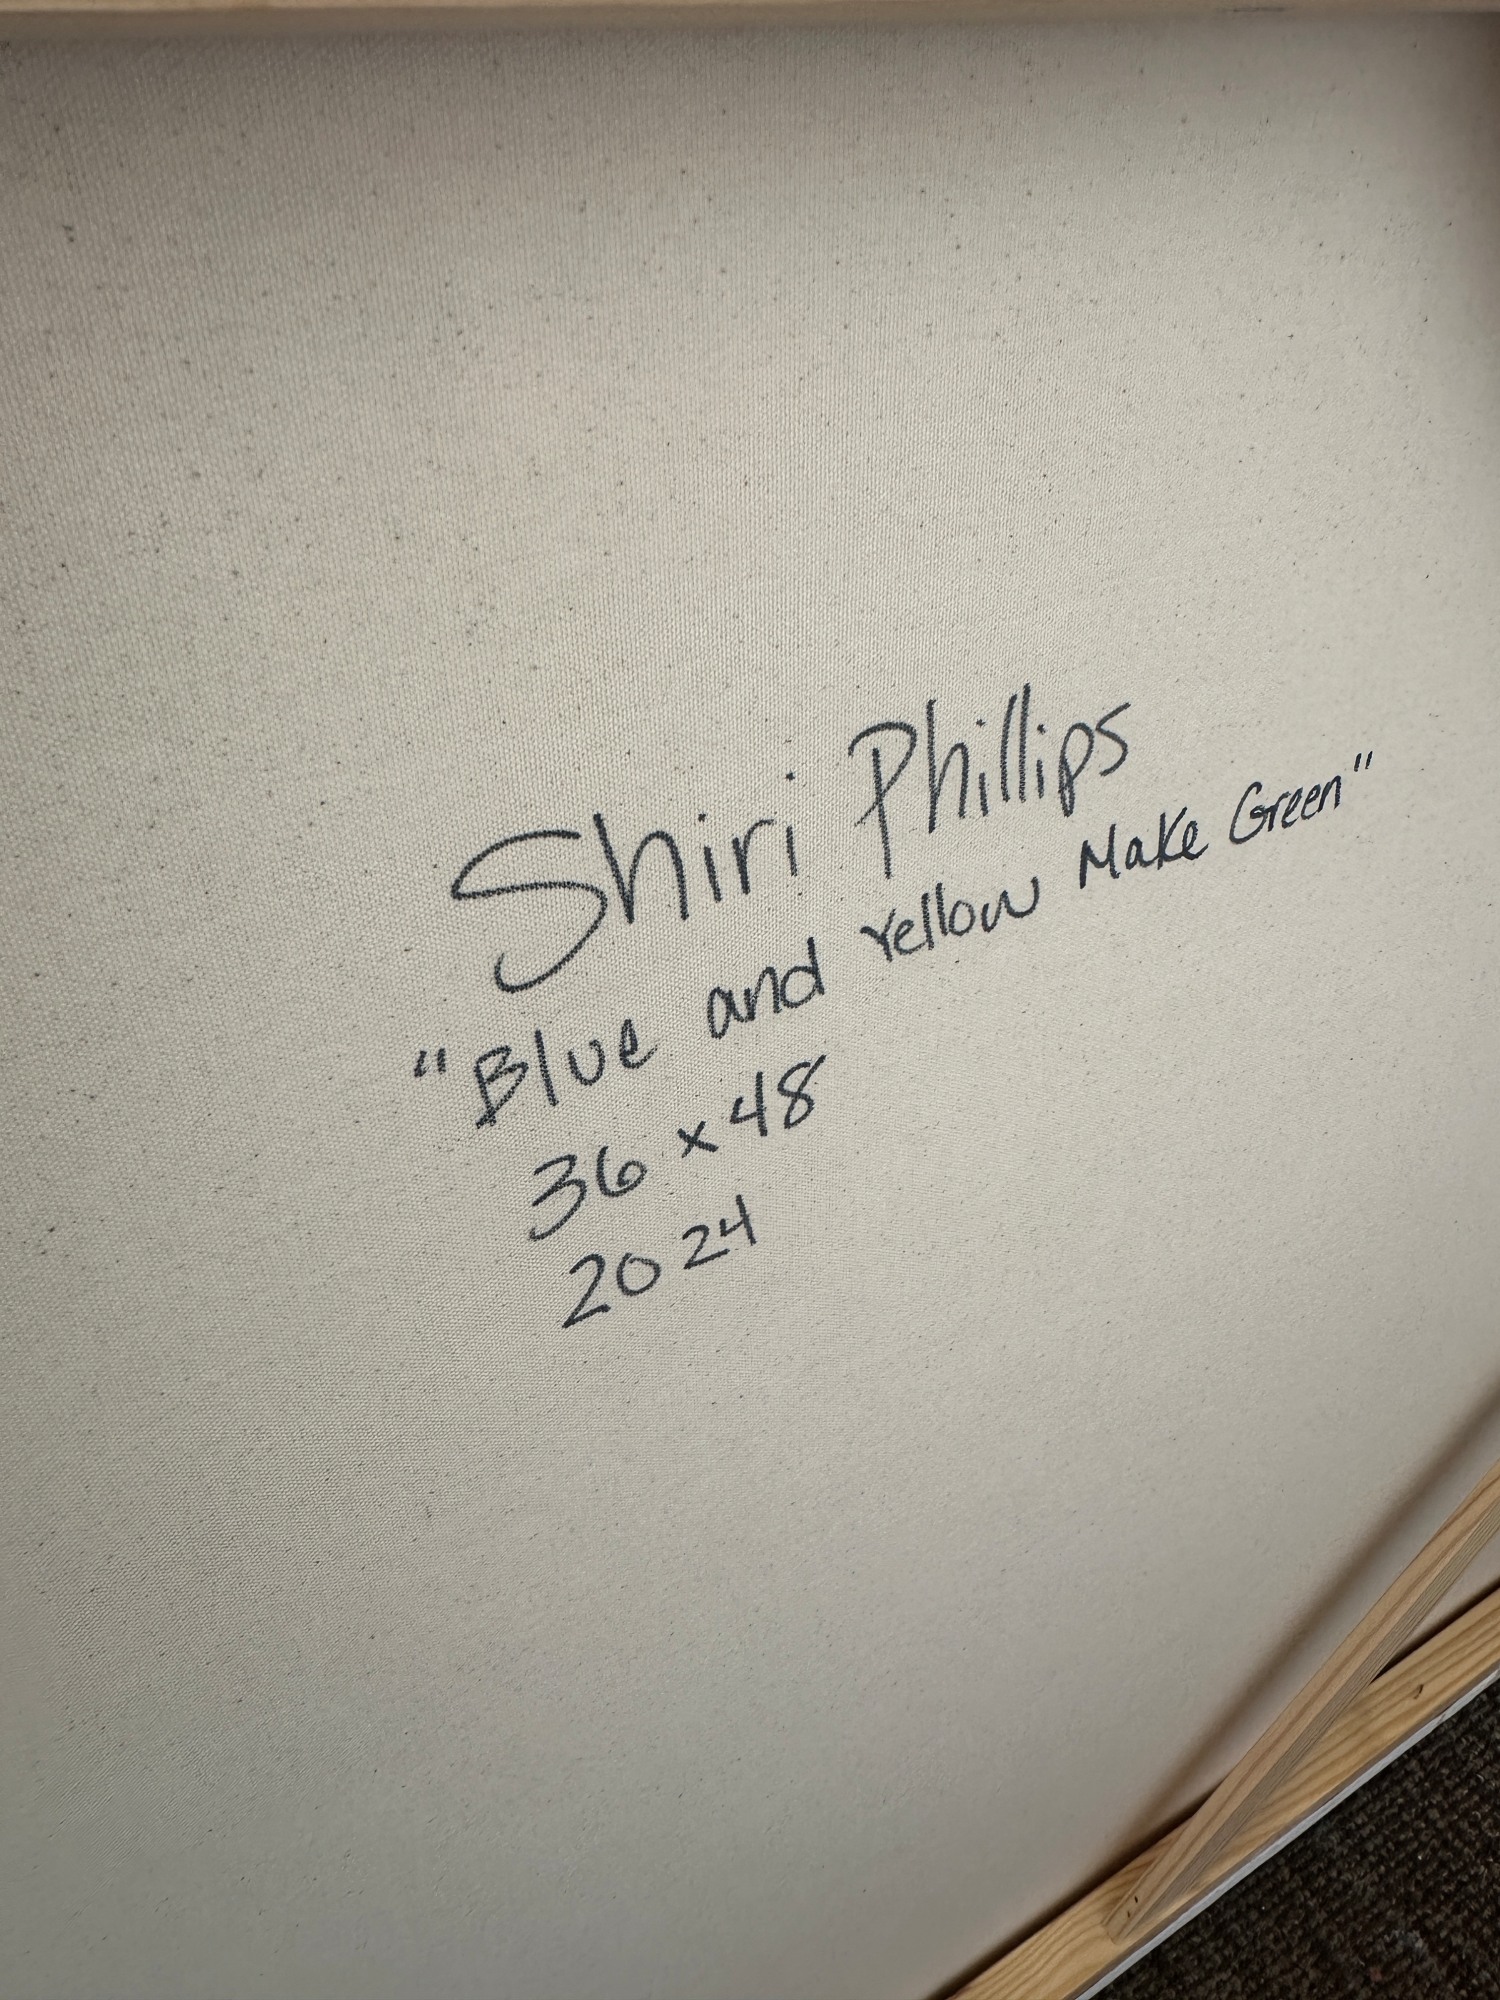 Shiri Phillips
"Blue and Yellow Make Green"
36 x 48
2024